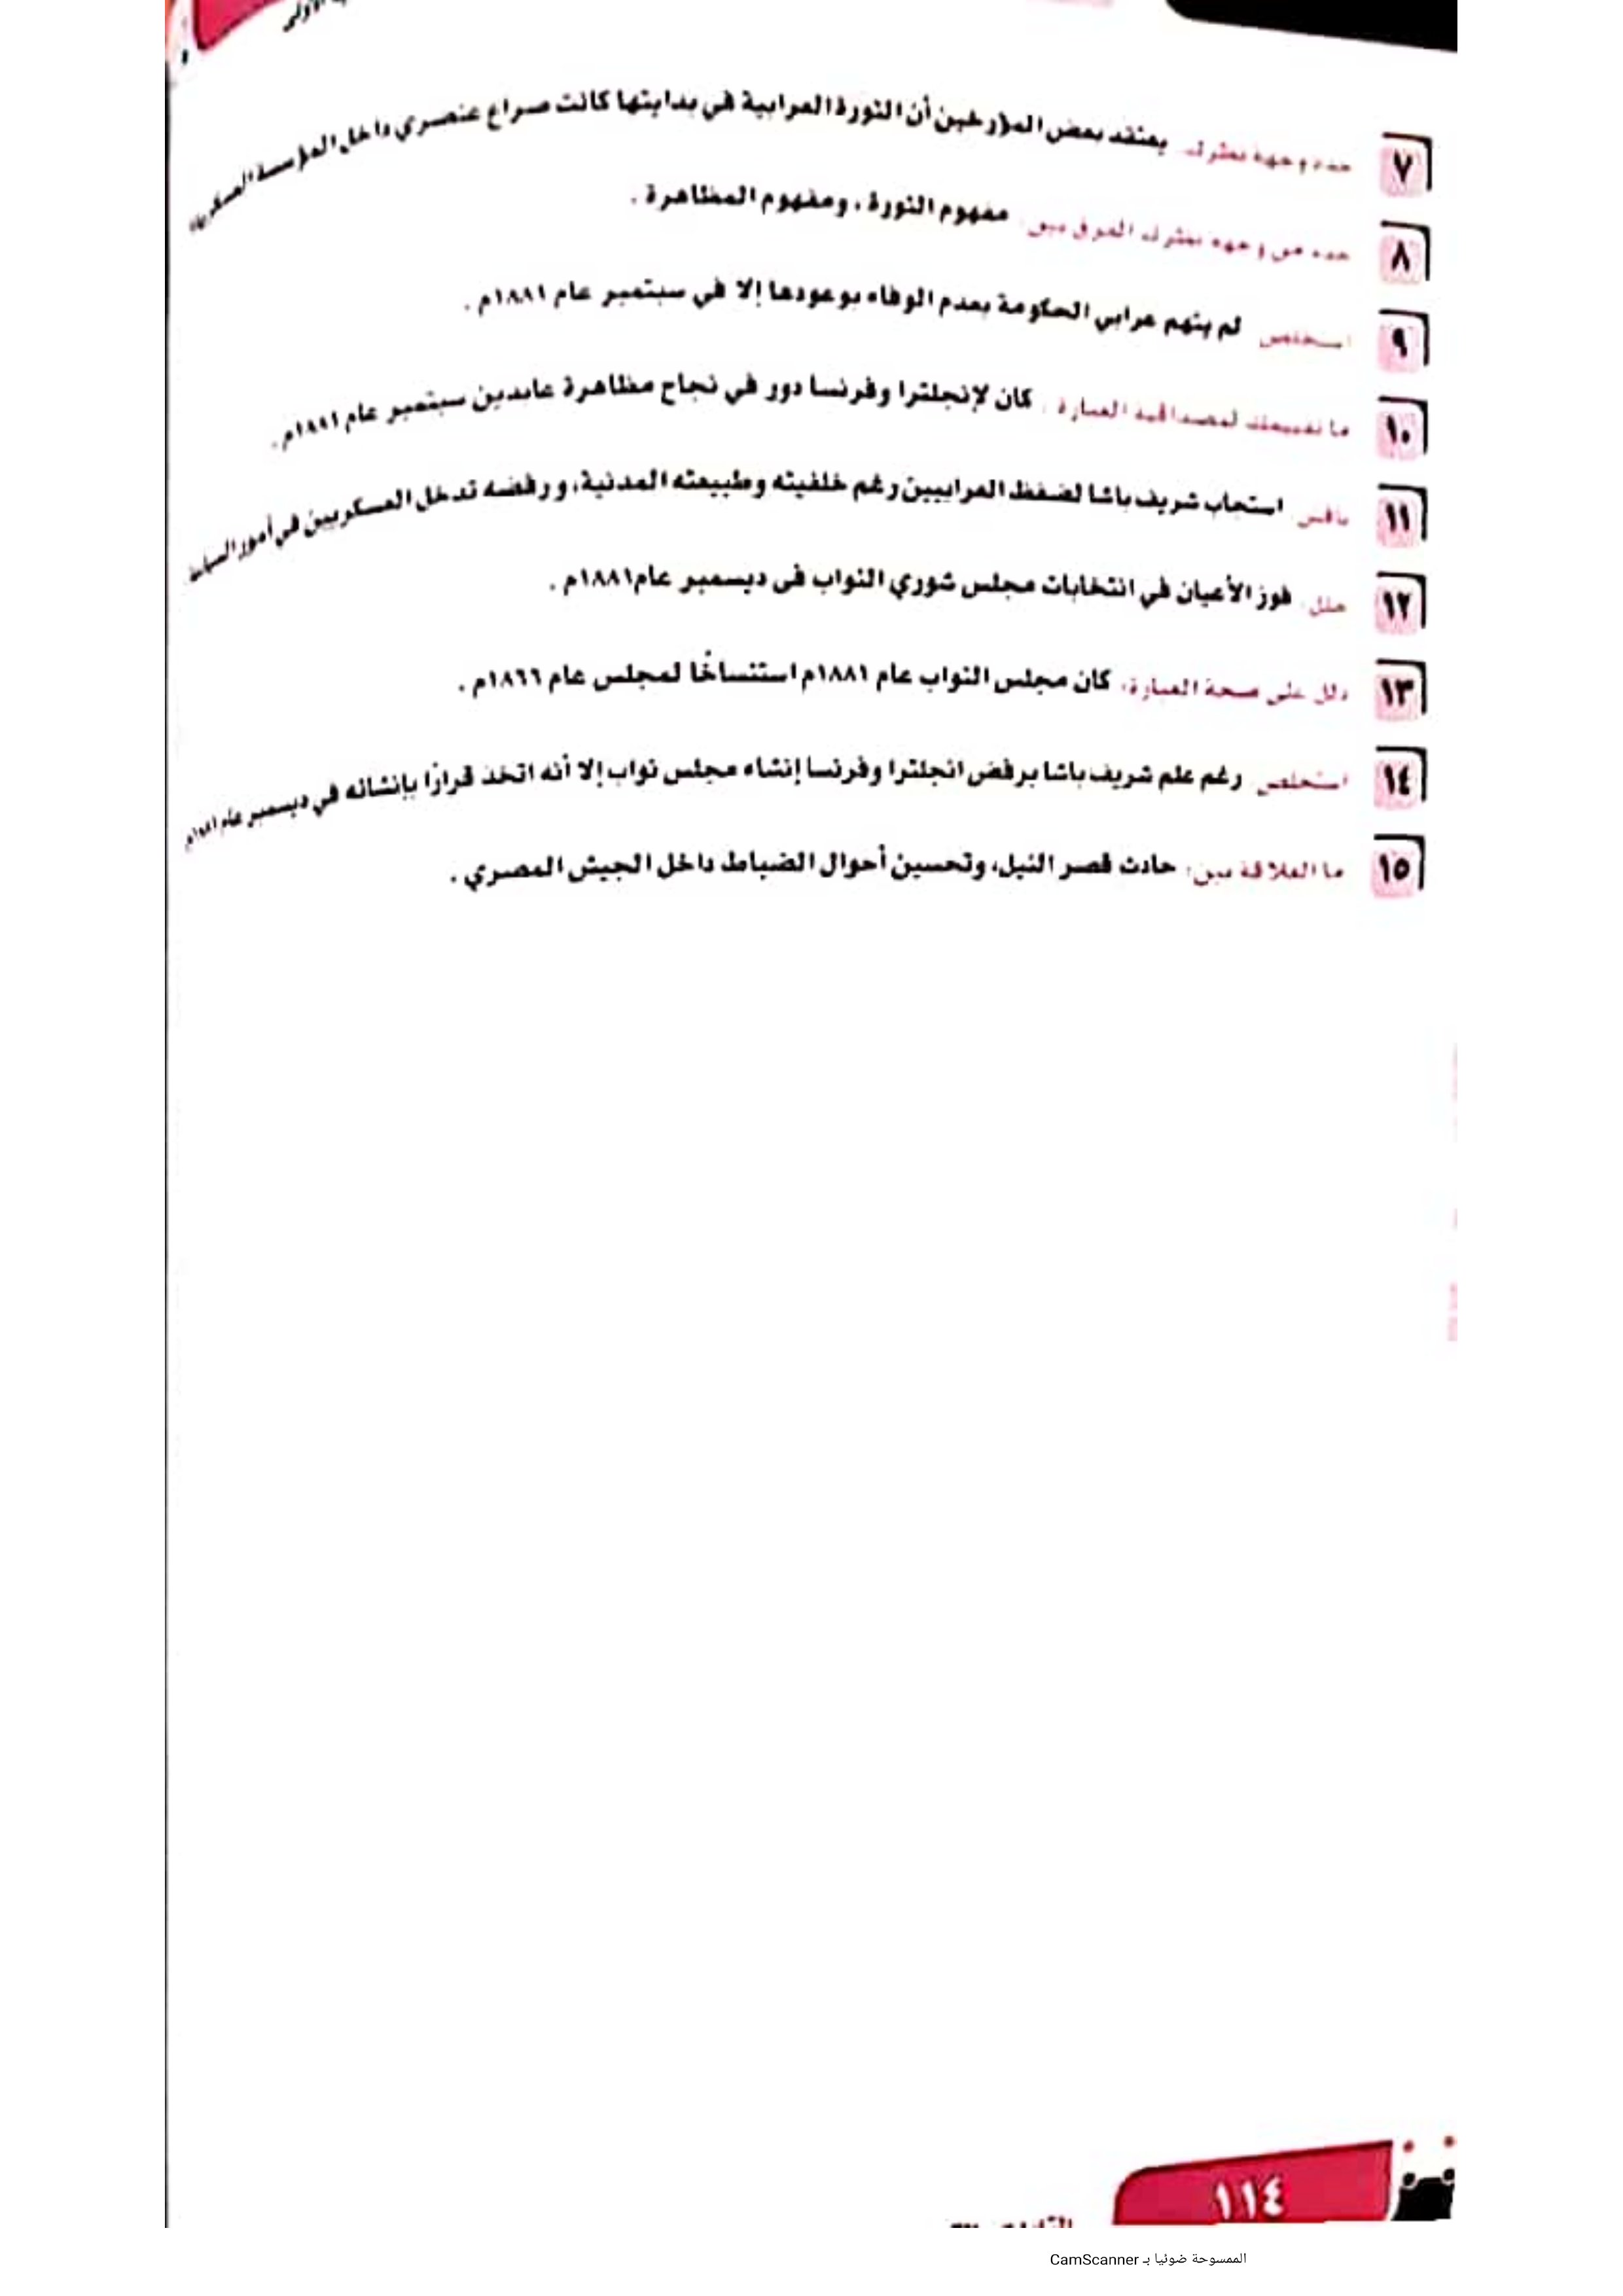 ٧ حدد وجهة نظرك. يعتقد بعض المؤرخين أن الثورة العرابية في بدايتها كانت صراع عنصري داخل المؤسسة العسكرية
٨ حدد من وجهة نظرك الفرق بين: مفهوم الثورة، ومفهوم المظاهرة.
٩ استخلص. لم يتهم عرابي الحكومة بعدم الوفاء بوعودها إلا في سبتمبر عام ١٨٨١م.
١٠ ما تقييمك لمصداقية العبارة. كان لإنجلترا وفرنسا دور في نجاح مظاهرة عابدين سبتمبر عام ١٨٨١م.
١١ ناقش. استجاب شريف باشا لضغط العرابيين رغم خلفيته وطبيعته المدنية، ورفضه تدخل العسكريين في أمور السياسة
١٢ علل. فوز الأعيان في انتخابات مجلس شوري النواب فى ديسمبر عام ١٨٨١م.
١٣ دلل على صحة العبارة، كان مجلس النواب عام ١٨٨١م استنساخًا لمجلس عام ١٨٦٦م.
١٤ استخلص. رغم علم شريف باشا برفض انجلترا وفرنسا إنشاء مجلس نواب إلا أنه اتخذ قرارًا بإنشائه في ديسمبر عام ١٨٨١م
١٥ ما العلاقة بين: حادث قصر النيل، وتحسين أحوال الضباط داخل الجيش المصري.
١١٤
الممسوحة ضوئيا بـ CamScanner